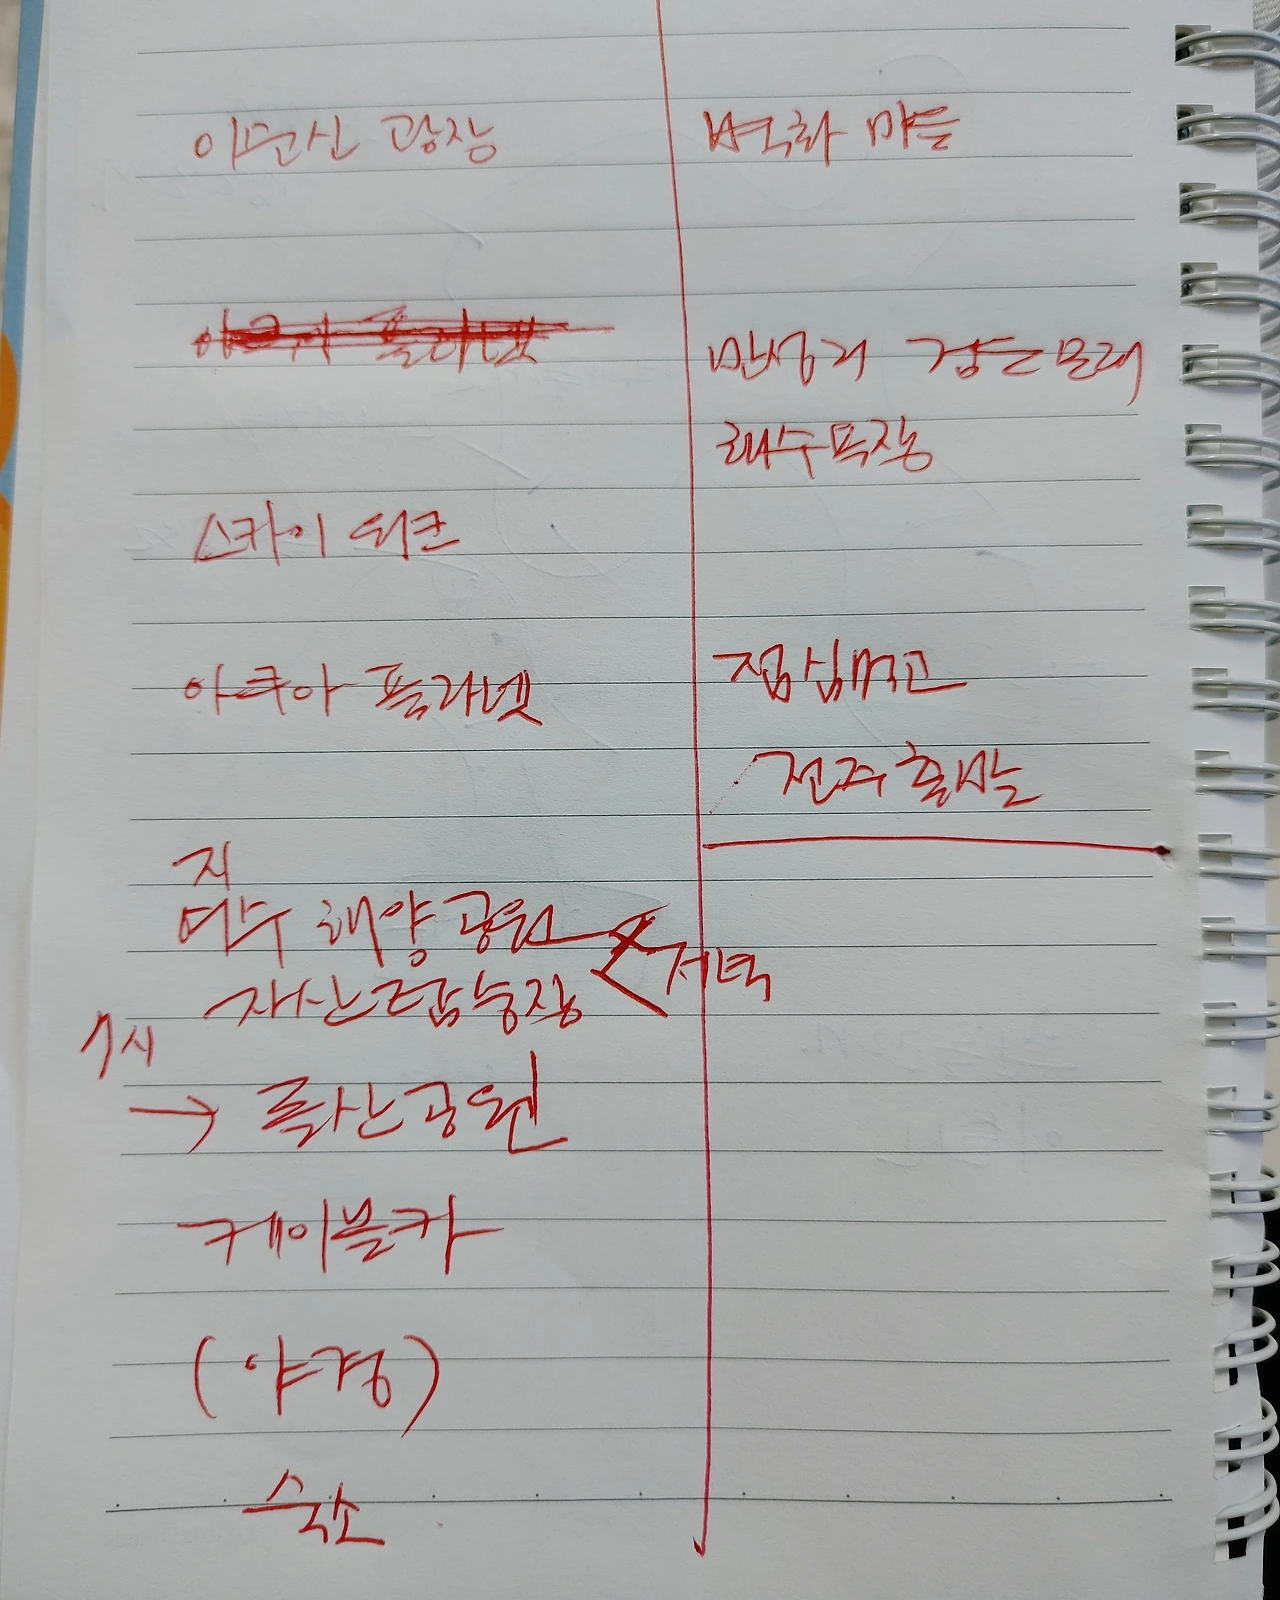 이순신 광장
스카이 워크
아쿠아 플라넷
지
여수 해양공원
자산 승장
저녁
7시
→ 돌산공원
케이블카
(야경)
숙소
벽화 마을
만성리 검은모래
해수욕장
점심먹고
전주 출발